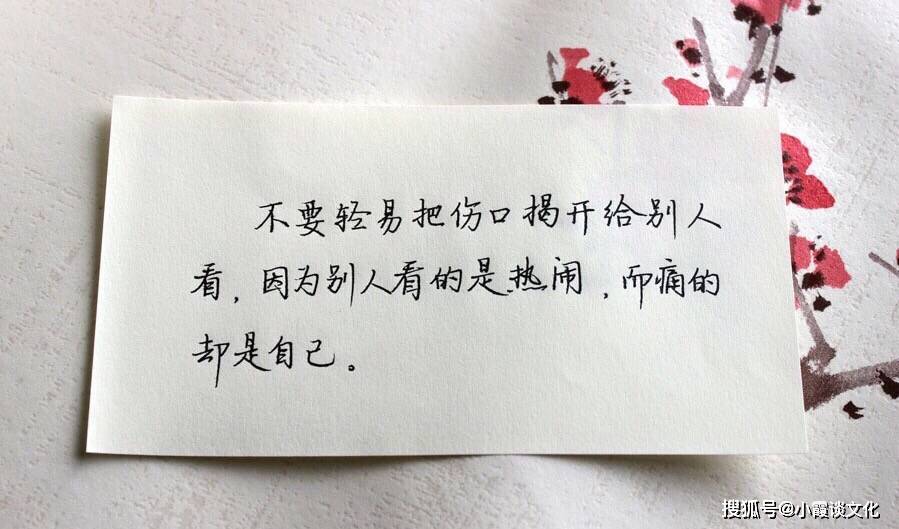 不要轻易把伤口揭开给别人
看,因为别人看的是热闹,而痛的
却是自己。
搜狐号@小霞谈文化